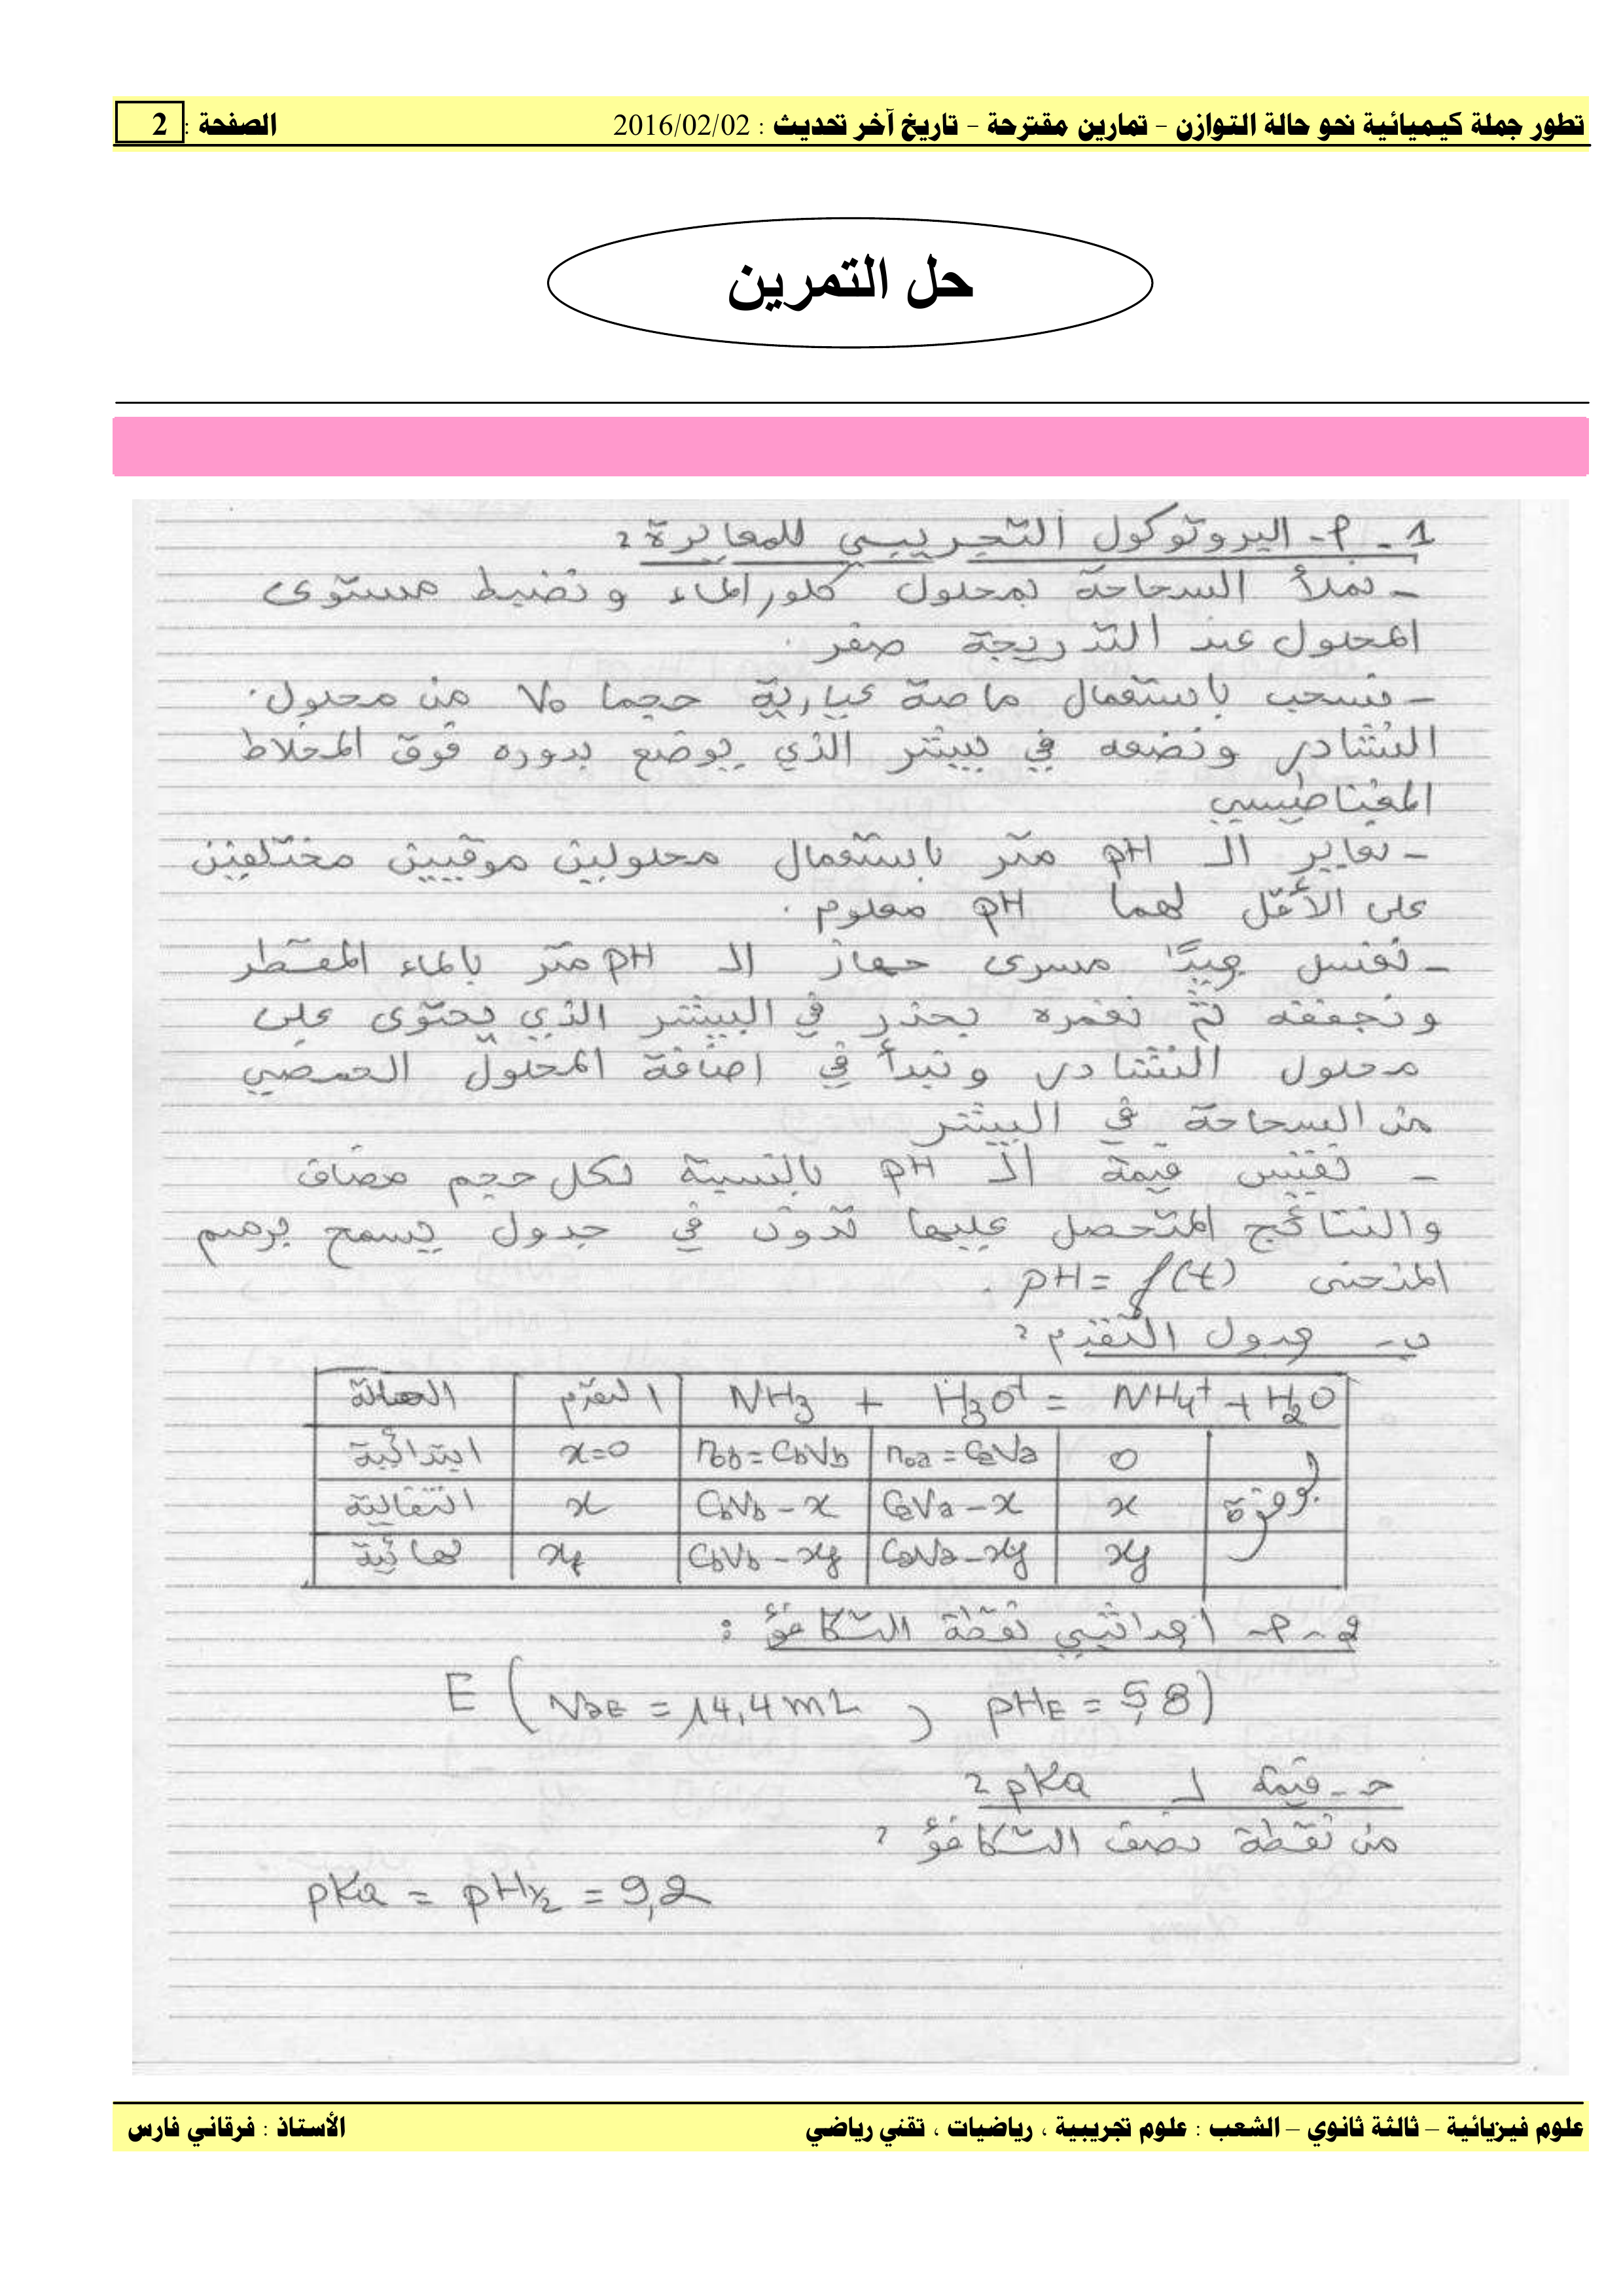 تطور جملة كيميائية نحو حالة التوازن – تمارين مقترحة – تاريخ آخر تحديث : 2016/02/02 الصفحة : 2
حل التمرين
1 - أ - البروتوكول التجريبي للمعايرة :
- نملأ السحاحة بمحلول كلور الماء ونضبط مستوى
المحلول عند التدريجة صفر .
- نسحب باستعمال ماصة عيارية حجما V₀ من محلول
النشادر ونضعه في بيشر الذي يوضع بدوره فوق المخلاط
المغناطيسي
- نعاير الـ pH متر باستعمال محلولين موقيين مختلفين
على الأقل لهما pH معلوم .
- نغسل جيدًا مسرى جهاز الـ pH متر بالماء المقطر
ونجففه ثم نغمره بحذر في البيشر الذي يحتوى على
محلول النشادر ونبدأ في اضافة المحلول الحمضي
من السحاحة في البيشر
- نقيس قيمة الـ pH بالنسبة لكل حجم مضاف
والنتائج المتحصل عليها تدوّن في جدول يسمح برسم
المنحنى pH = f(t) .
ب - جدول التقدم :
الحالة | التقدم | NH₃ + H₃O⁺ = NH₄⁺ + H₂O
ابتدائية | x=0 | n₀b = CbVb | n₀a = CaVa | 0 | بوفرة
انتقالية | x | CbVb - x | CaVa - x | x
نهائية | xf | CbVb - xf | CaVa - xf | xf
2 - أ - احداثيي نقطة التكافؤ :
E ( VaE = 14,4 mL , pHE = 5,8 )
حـ - قيمة لـ pKa :
من نقطة نصف التكافؤ :
pKa = pH½ = 9,2
علوم فيزيائية – ثالثة ثانوي – الشعب : علوم تجريبية ، رياضيات ، تقني رياضي الأستاذ : فرقاني فارس